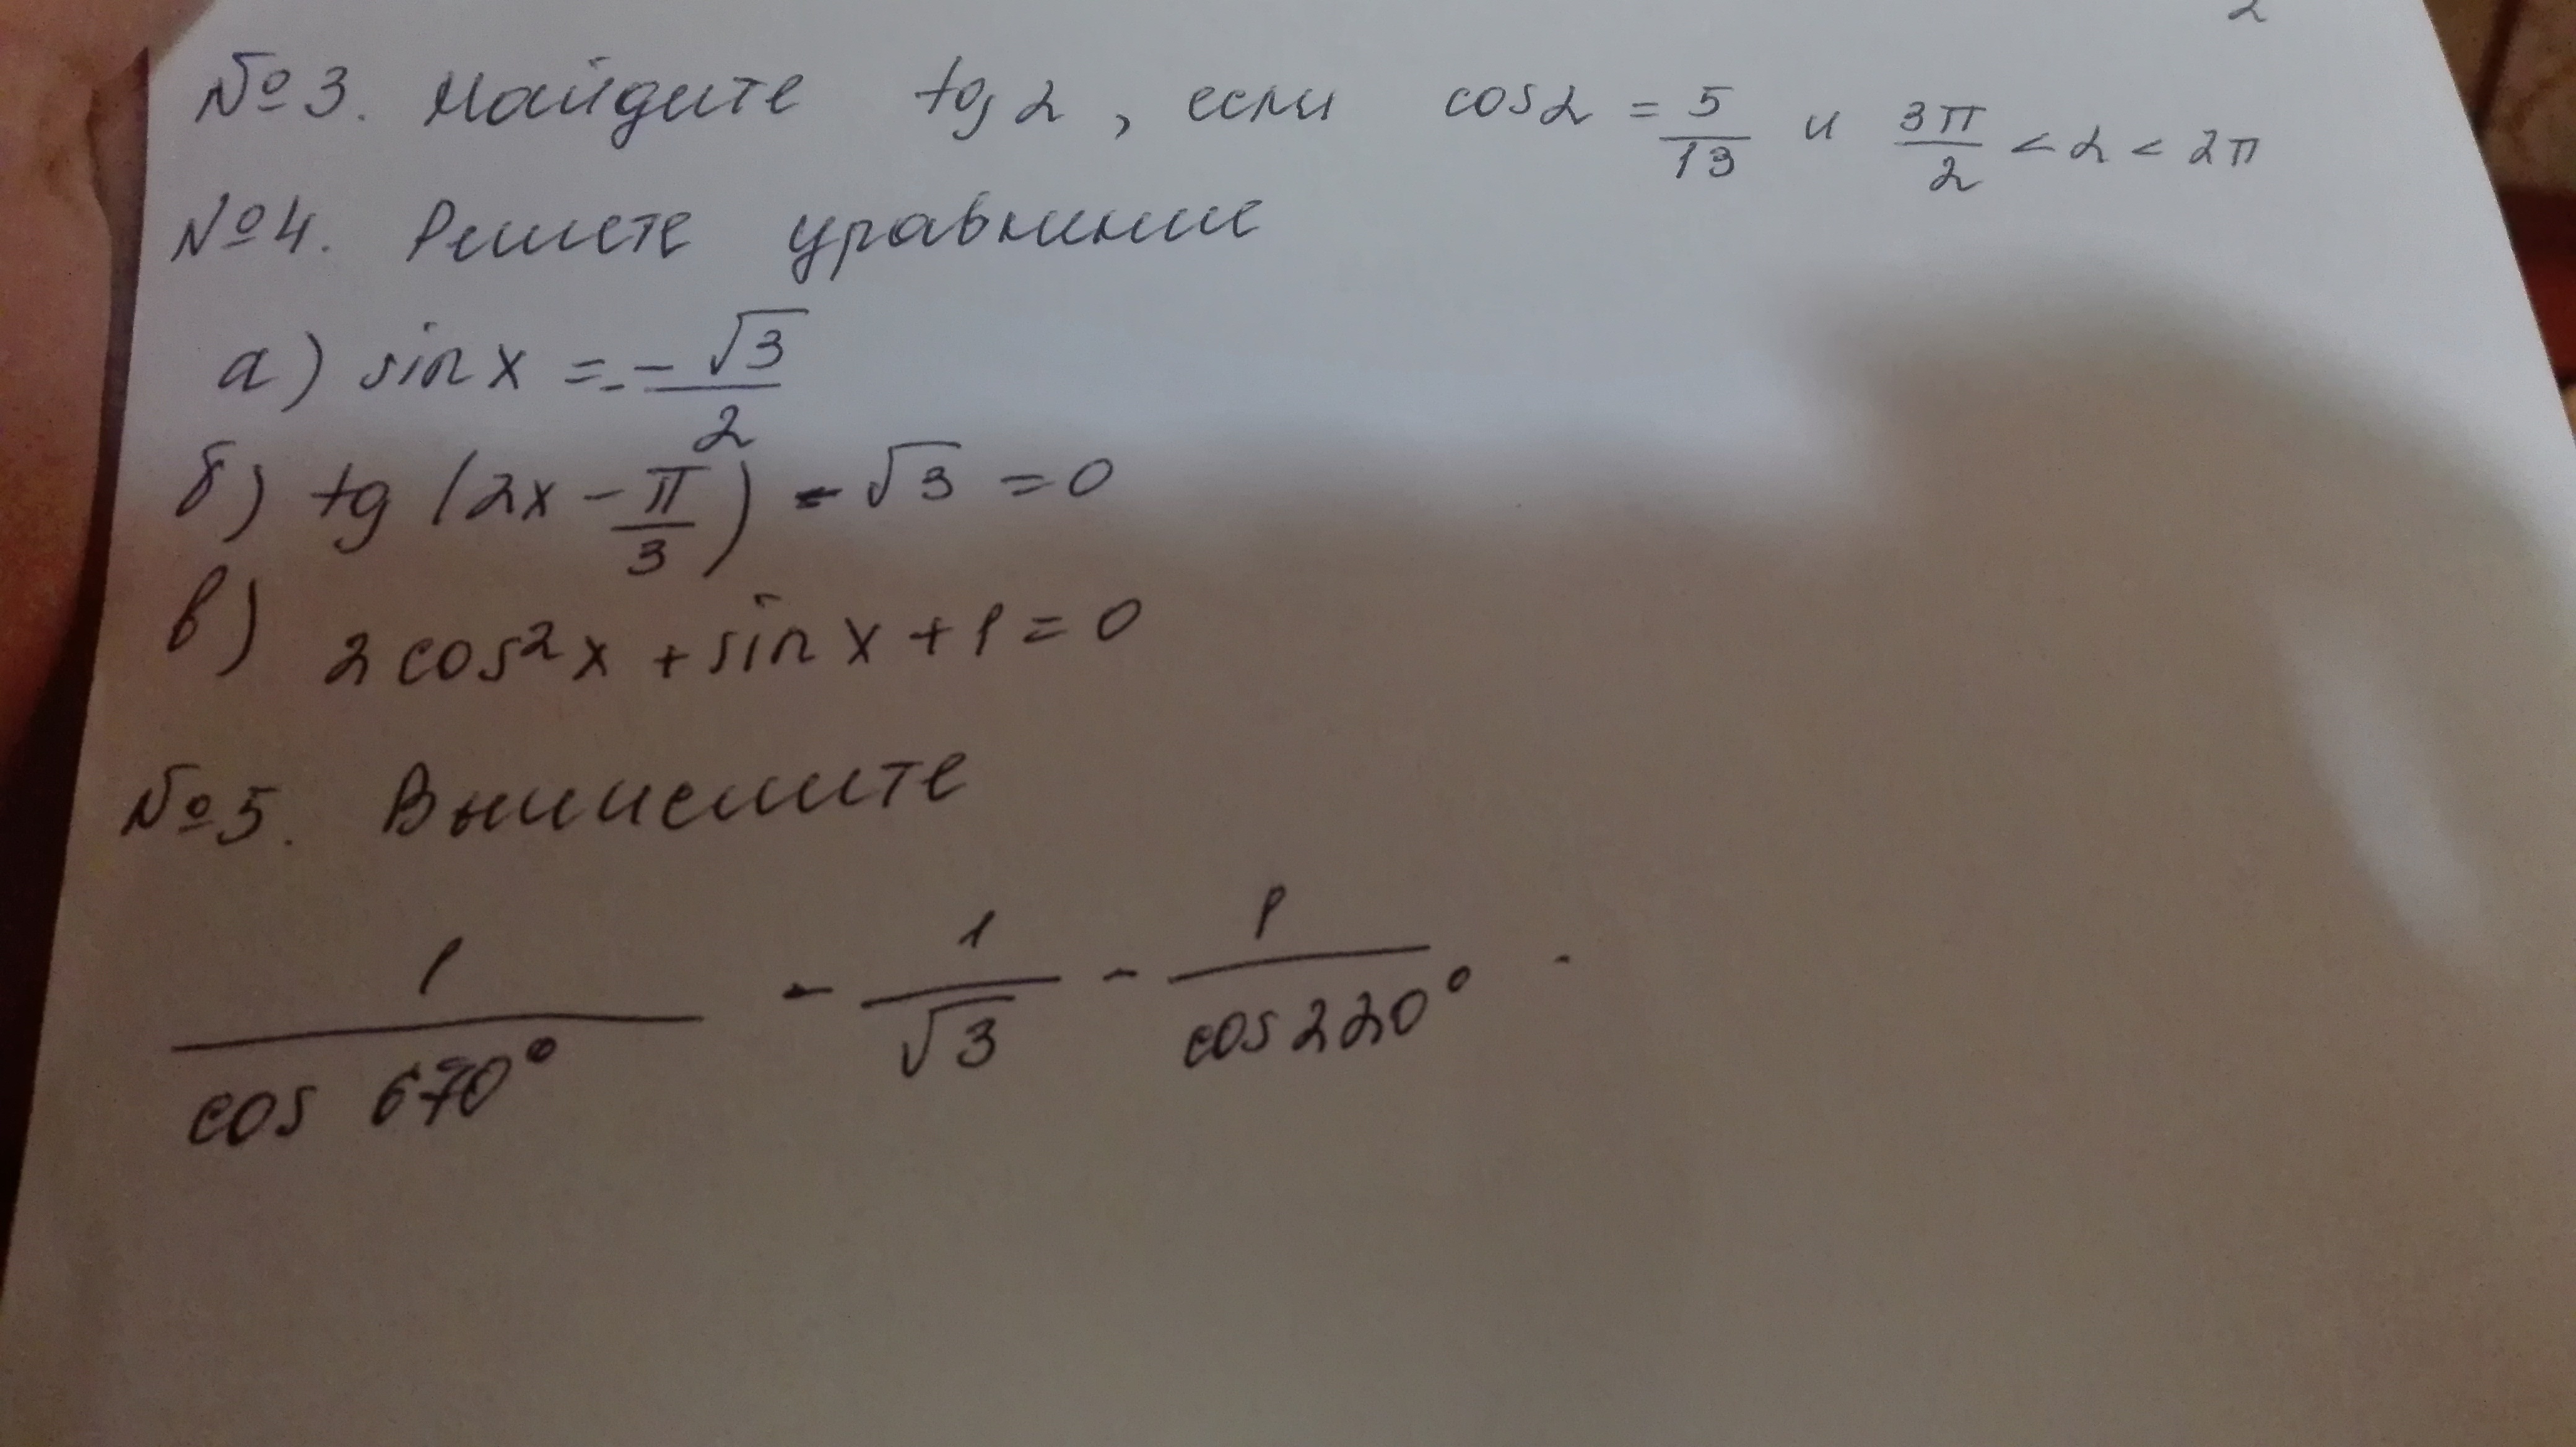 2
№3. Найдите tg α, если cos α = 5/13 и 3π/2 < α < 2π
№4. Решете уравнение
а) sin x = - √3/2
б) tg (2x - π/3) - √3 = 0
в) 2 cos² x + sin x + 1 = 0
№5. Вычислите
1/cos 670° - 1/√3 - 1/cos 220°